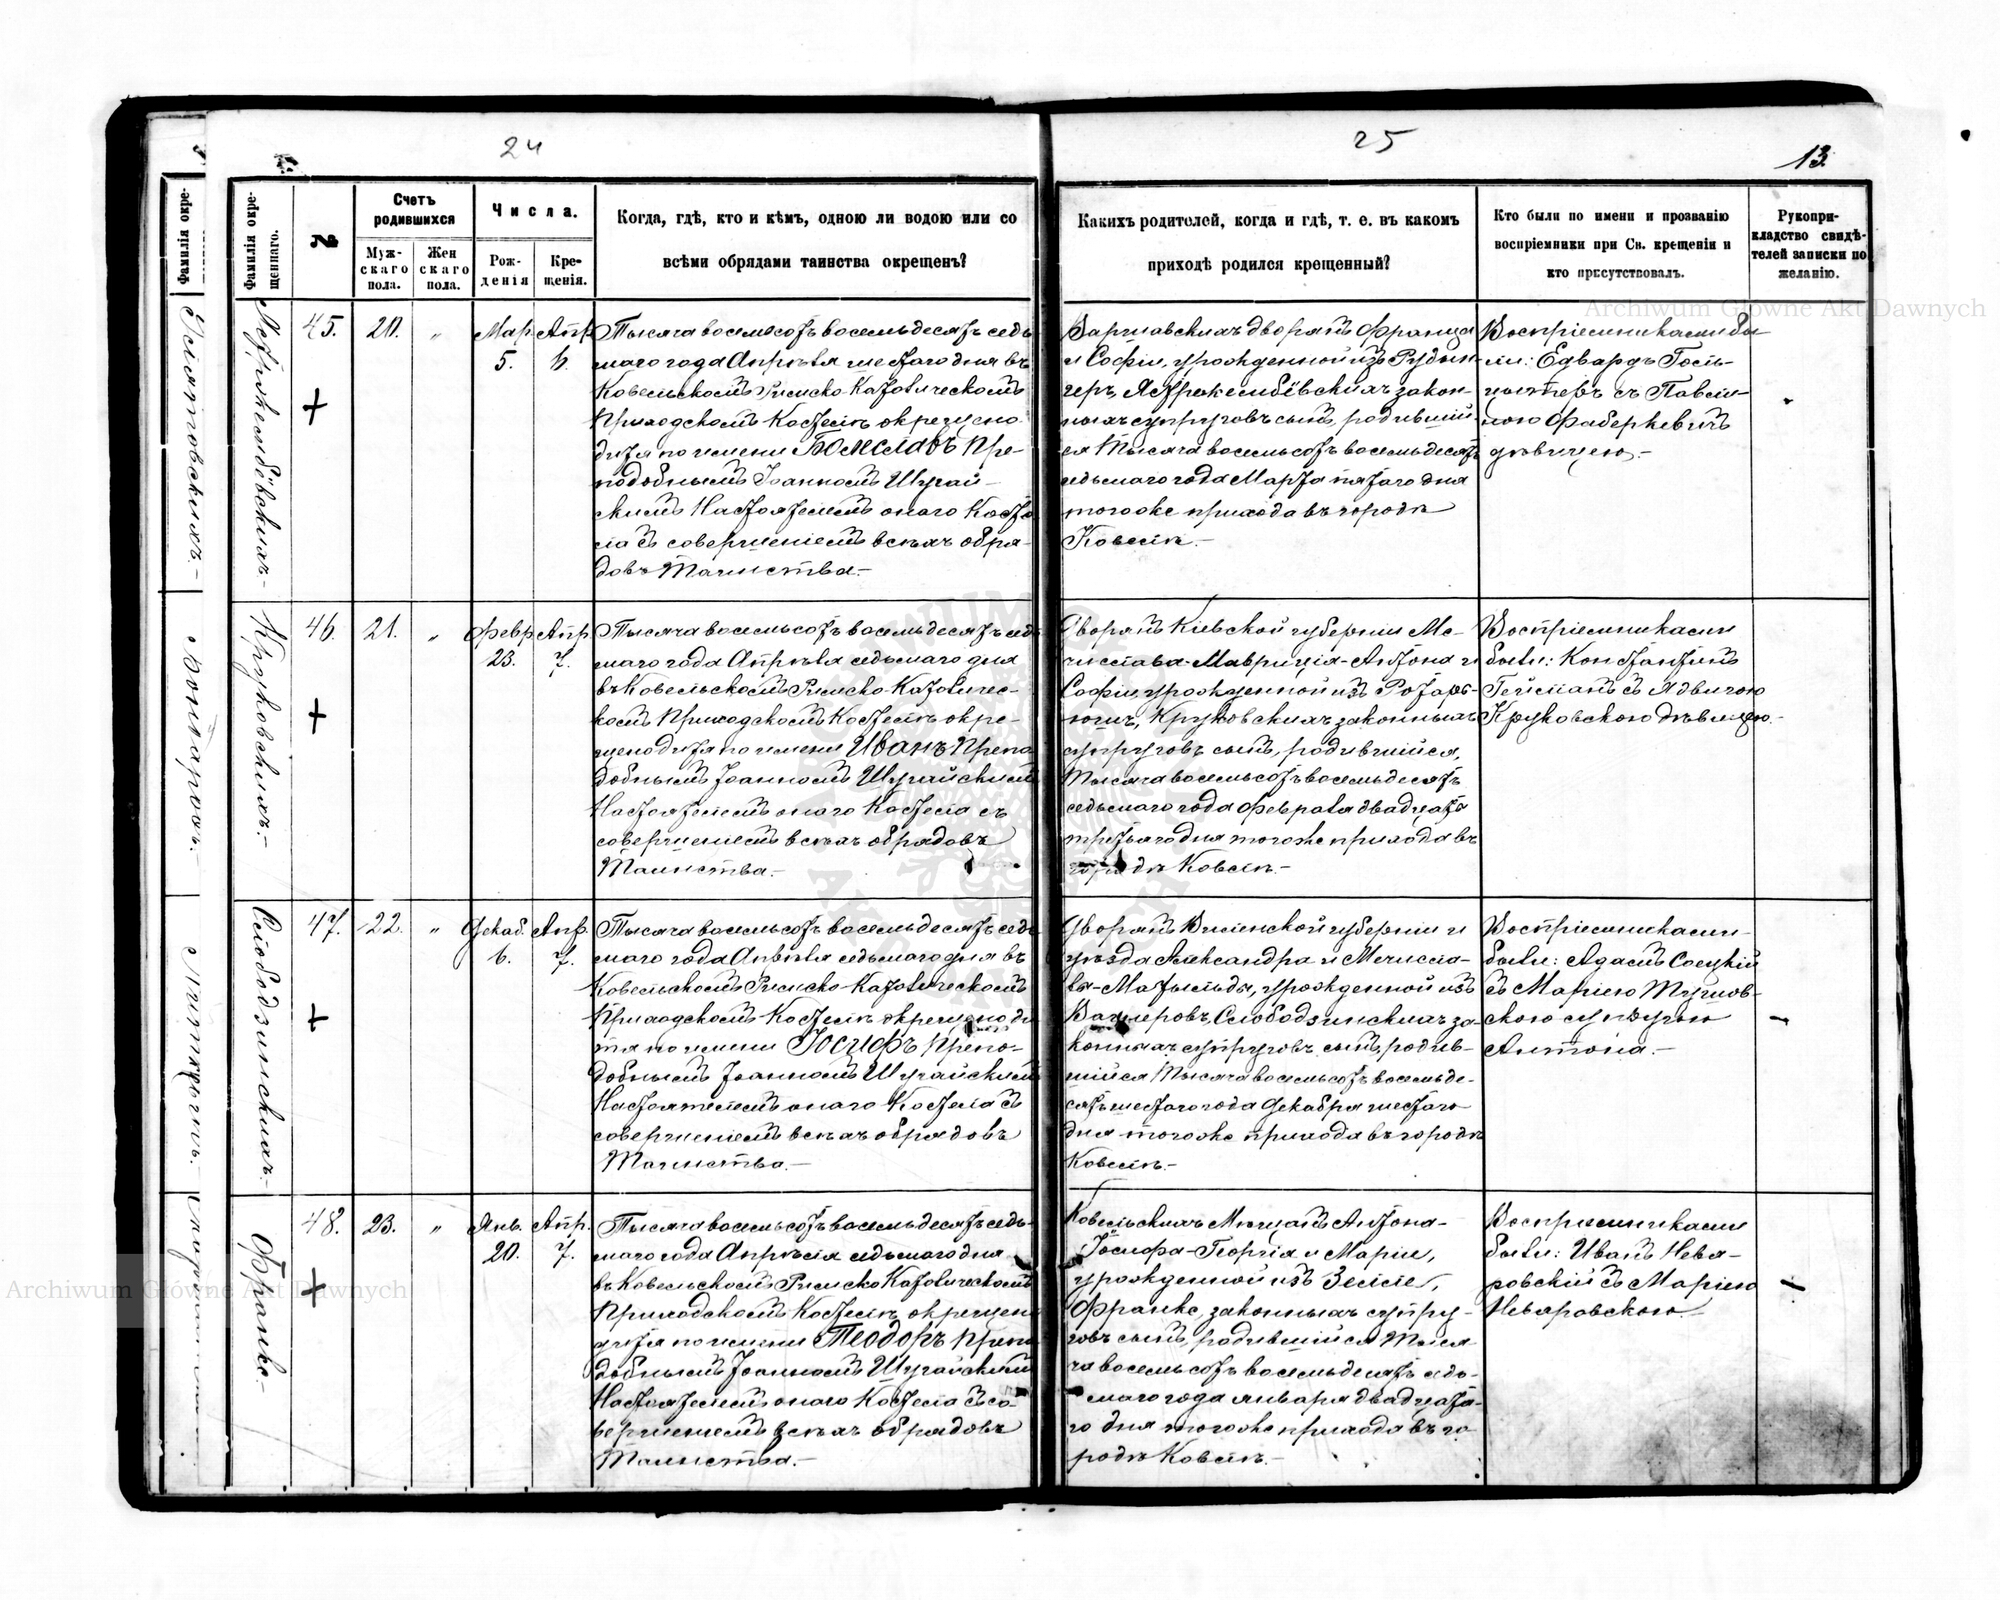 24
25
13.
Фамилія окре-
Фамилія окре-
щеннаго.
№
Счетъ
родившихся
Муж-
скаго
пола.
Жен
скаго
пола.
Числа.
Рож-
денія
Кре-
щенія.
Когда, гдѣ, кто и кѣмъ, одною ли водою или со
всѣми обрядами таинства окрещенъ?
Какихъ родителей, когда и гдѣ, т. е. въ какомъ
приходѣ родился крещенный?
Кто были по имени и прозванію
воспріемники при Св. крещеніи и
кто присутствовалъ.
Рукопри-
кладство свидѣ-
телей записки по
желанію.
45.
20.
"
Мар.
5.
Апр.
6.
Тысяча восемьсотъ восемьдесятъ седь
маго года Апрѣля шестаго дня въ
Ковельскомъ Римско-Католическомъ
Приходскомъ Костелѣ окрещено
дитя по имени Болеславъ Пре-
подобнымъ Іоанномъ Шугай-
скимъ Настоятелемъ онаго Косте
ла съ совершеніемъ всѣхъ обря-
довъ Таинства.-
Варшавскихъ дворянъ Франца
и Софіи, урожденной изъ
законныхъ супруговъ сынъ, родившій
ся Тысяча восемьсотъ восемьдесятъ
седьмаго года Марта пятаго дня
тогоже прихода въ городѣ
Ковелѣ.-
Воспріемниками бы
ли: Едвардъ
съ
дѣвицею.-
Круковскихъ.-
46.
21.
"
Февр
23.
Апр.
7.
Тысяча восемьсотъ восемьдесятъ сед
маго года Апрѣля седьмаго дня
въ Ковельскомъ Римско-Католичес-
комъ Приходскомъ Костелѣ окре-
щено дитя по имени Иванъ Препо
добнымъ Іоанномъ Шугайскимъ
Настоятелемъ онаго Костела съ
совершеніемъ всѣхъ обрядовъ
Таинства.-
Дворянъ Кіевской губерніи Ме-
числава-Маврикія-Антона и
Софіи, урожденной изъ
Круковскихъ законныхъ
супруговъ сынъ, родившійся,
Тысяча восемьсотъ восемьдесятъ
седьмаго года Февраля двадцать
третьяго дня тогоже прихода въ
городѣ Ковелѣ.-
Воспріемниками
были: Константинъ
Гейсманъ съ Ядвигою
Круковскою дѣвицею.-
Слободзинскихъ.-
47.
22.
"
Декаб.
6.
Апр.
7.
Тысяча восемьсотъ восемьдесятъ седь
маго года Апрѣля седьмаго дня въ
Ковельскомъ Римско-Католическомъ
Приходскомъ Костелѣ окрещено ди
тя по имени Іосифъ Препо-
добнымъ Іоанномъ Шугайскимъ
Настоятелемъ онаго Костела съ
совершеніемъ всѣхъ обрядовъ
Таинства.-
Дворянъ Виленской губерніи и
уѣзда Александра и Мечисла-
вы-Матыльды, урожденной изъ
Слободзинскихъ за-
конныхъ супруговъ сынъ, родив-
шійся Тысяча восемьсотъ восемьде-
сятъ шестаго года Декабря шестаго
дня тогоже прихода въ городѣ
Ковелѣ.-
Воспріемниками
были: Адамъ Соецкій
съ Маріею
скою супругою
Антона.-
Франке.-
48.
23.
"
Янв.
20.
Апр.
7.
Тысяча восемьсотъ восемьдесятъ седь-
маго года Апрѣля седьмаго дня
въ Ковельскомъ Римско Католическомъ
Приходскомъ Костелѣ окрещено
дитя по имени Теодоръ Препо
добнымъ Іоанномъ Шугайскимъ
Настоятелемъ онаго Костела съ со
вершеніемъ всѣхъ обрядовъ
Таинства.-
Ковельскихъ Мѣщанъ Антона-
Іосифа-Георгія и Маріи,
урожденной изъ
Франке, законныхъ супру-
говъ сынъ, родившійся Тыся
ча восемьсотъ восемьдесятъ седь-
маго года Января двадцата-
го дня тогоже прихода въ го
родѣ Ковелѣ.-
Воспріемниками
были: Иванъ Невя-
ровскій съ Маріею
Невяровскою.
Archiwum Główne Akt Dawnych
Archiwum Główne Akt Dawnych